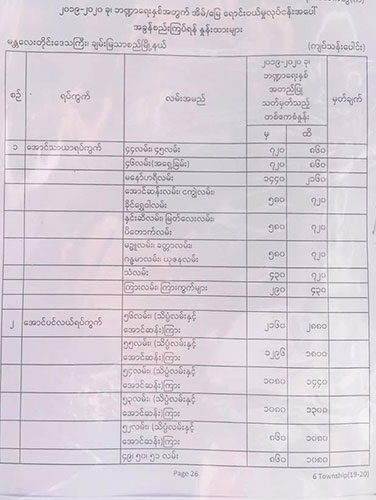 ၂၀၁၉-၂၀၂၀ ခု၊ ဘဏ္ဍာရေးနှစ်အတွက် အိမ်/မြေ ရောင်းဝယ်မှုလုပ်ငန်းအပေါ်
အခွန်စည်းကြပ်ရန် နှုန်းထားများ
မန္တလေးတိုင်းဒေသကြီး၊ ချမ်းမြသာစည်မြို့နယ် (ကျပ်သန်းပေါင်း)
စဉ် ရပ်ကွက် လမ်းအမည် ၂၀၁၉-၂၀၂၀ ခု၊ ဘဏ္ဍာရေးနှစ် အတည်ပြု သတ်မှတ်သည့် တစ်ဧကစံနှုန်း မှတ်ချက်
မှ ထိ
၁ အောင်သာယာရပ်ကွက် ၄၄လမ်း၊ ၄၅လမ်း ၇၂၀ ၈၆၀
၄၆လမ်း(အရှေ့ခြမ်း) ၇၂၀ ၈၆၀
မနော်ဟရီလမ်း ၁၄၄၀ ၂၁၆၀
အောင်ဆန်းလမ်း၊ ငုရွှေဝါလမ်း ၅၈၀ ၇၂၀
နှင်းဆီလမ်း၊ မြတ်လေးလမ်း၊
ပိတောက်လမ်း ၅၈၀ ၇၂၀
မဥ္ဇူလမ်း၊ ခတ္တာလမ်း၊
ဂန္ဓမာလမ်း၊ ယုဇနလမ်း ၅၈၀ ၇၂၀
သံလမ်း ၄၃၀ ၇၂၀
ကြားလမ်း၊ ကြားကွက်များ ၂၉၀ ၄၃၀
၂ အောင်ပင်လယ်ရပ်ကွက် ၅၆လမ်း၊ (သိပ္ပံလမ်းနှင့်
အောင်ဆန်း)ကြား ၂၁၆၀ ၂၈၈၀
၅၅လမ်း၊ (သိပ္ပံလမ်းနှင့်
အောင်ဆန်း)ကြား ၁၂၉၆ ၁၈၀၀
၅၄လမ်း၊ (သိပ္ပံလမ်းနှင့်
အောင်ဆန်း)ကြား ၁၀၈၀ ၁၄၄၀
၅၃လမ်း၊ (သိပ္ပံလမ်းနှင့်
အောင်ဆန်း)ကြား ၁၀၀၀ ၁၃၀၀
၅၂လမ်း၊ (သိပ္ပံလမ်းနှင့်
အောင်ဆန်း)ကြား ၈၆၀ ၁၀၈၀
၄၉၊ ၅၀၊ ၅၁ လမ်း ၈၆၀ ၁၀၈၀
Page 26 6 Township(19-20)